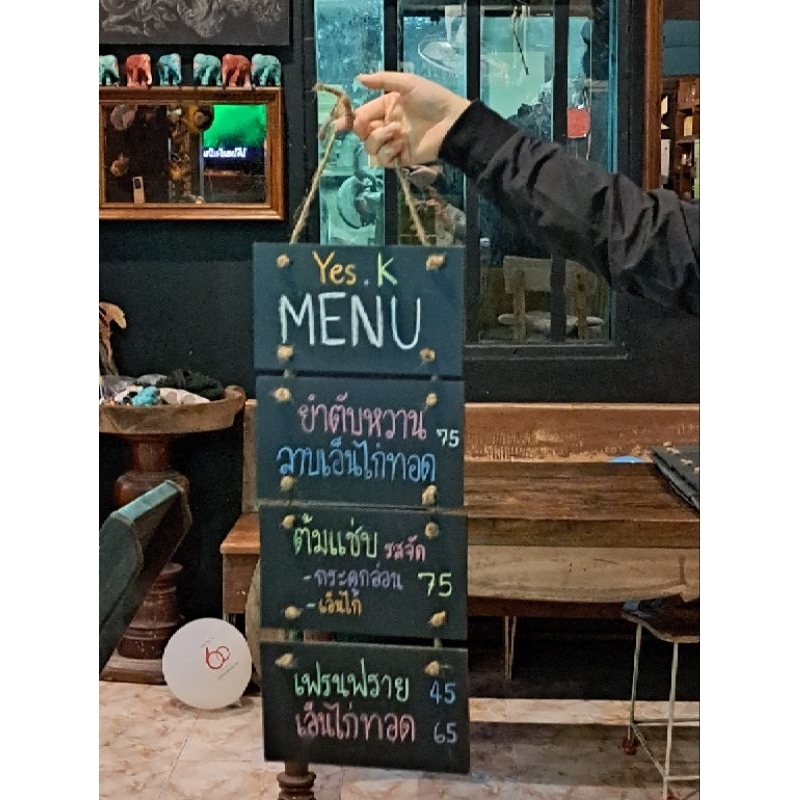 Yes. K
MENU
ยำตับหวาน 75
ลาบเอ็นไก่ทอด
ต้มแซ่บ รสจัด
- กระดูกอ่อน 75
- เอ็นไก่
เฟรนฟราย 45
เอ็นไก่ทอด 65
60